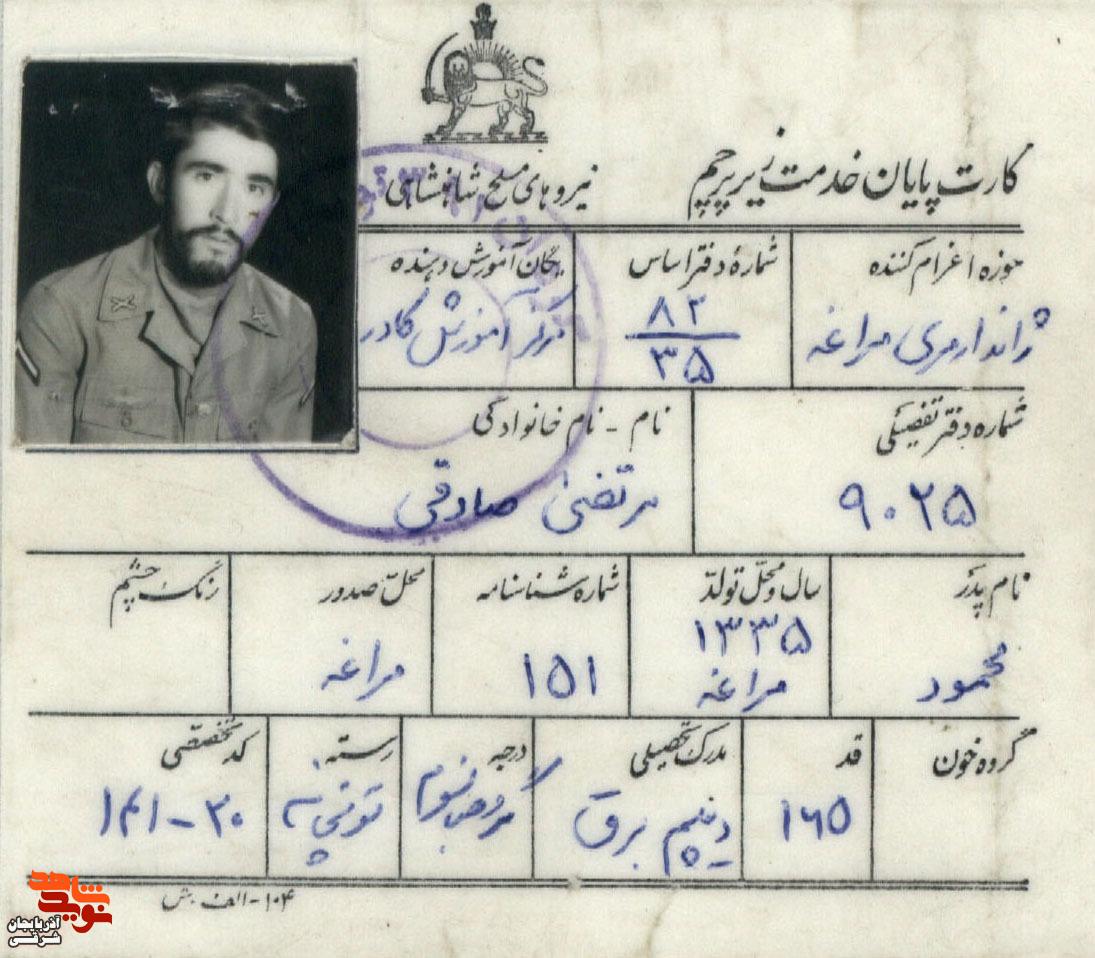 کارت پایان خدمت زیر پرچم
نیروهای مسلح شاهنشاهی
حوزه اعزام کننده
شمارهٔ دفتر اساس
یگان آموزش دهنده
ژاندارمری مراغه
۸۲
۳۵
مرکز آموزش کادر
شماره دفتر تفصیلی
نام - نام خانوادگی
۹۰۲۵
مرتضی صادقی
نام پدر
سال و محل تولد
شماره شناسنامه
محل صدور
رنگ چشم
محمود
۱۳۳۵
مراغه
۱۵۱
مراغه
گروه خون
قد
مدرک تحصیلی
درجه
رسته
کد تخصصی
۱۶۵
دیپلم برق
گروهبانسوم
توپخانه
۱۴۱-۳۰
۱۰۴-الف ش
نوید شاهد
آذربایجان
شرقی